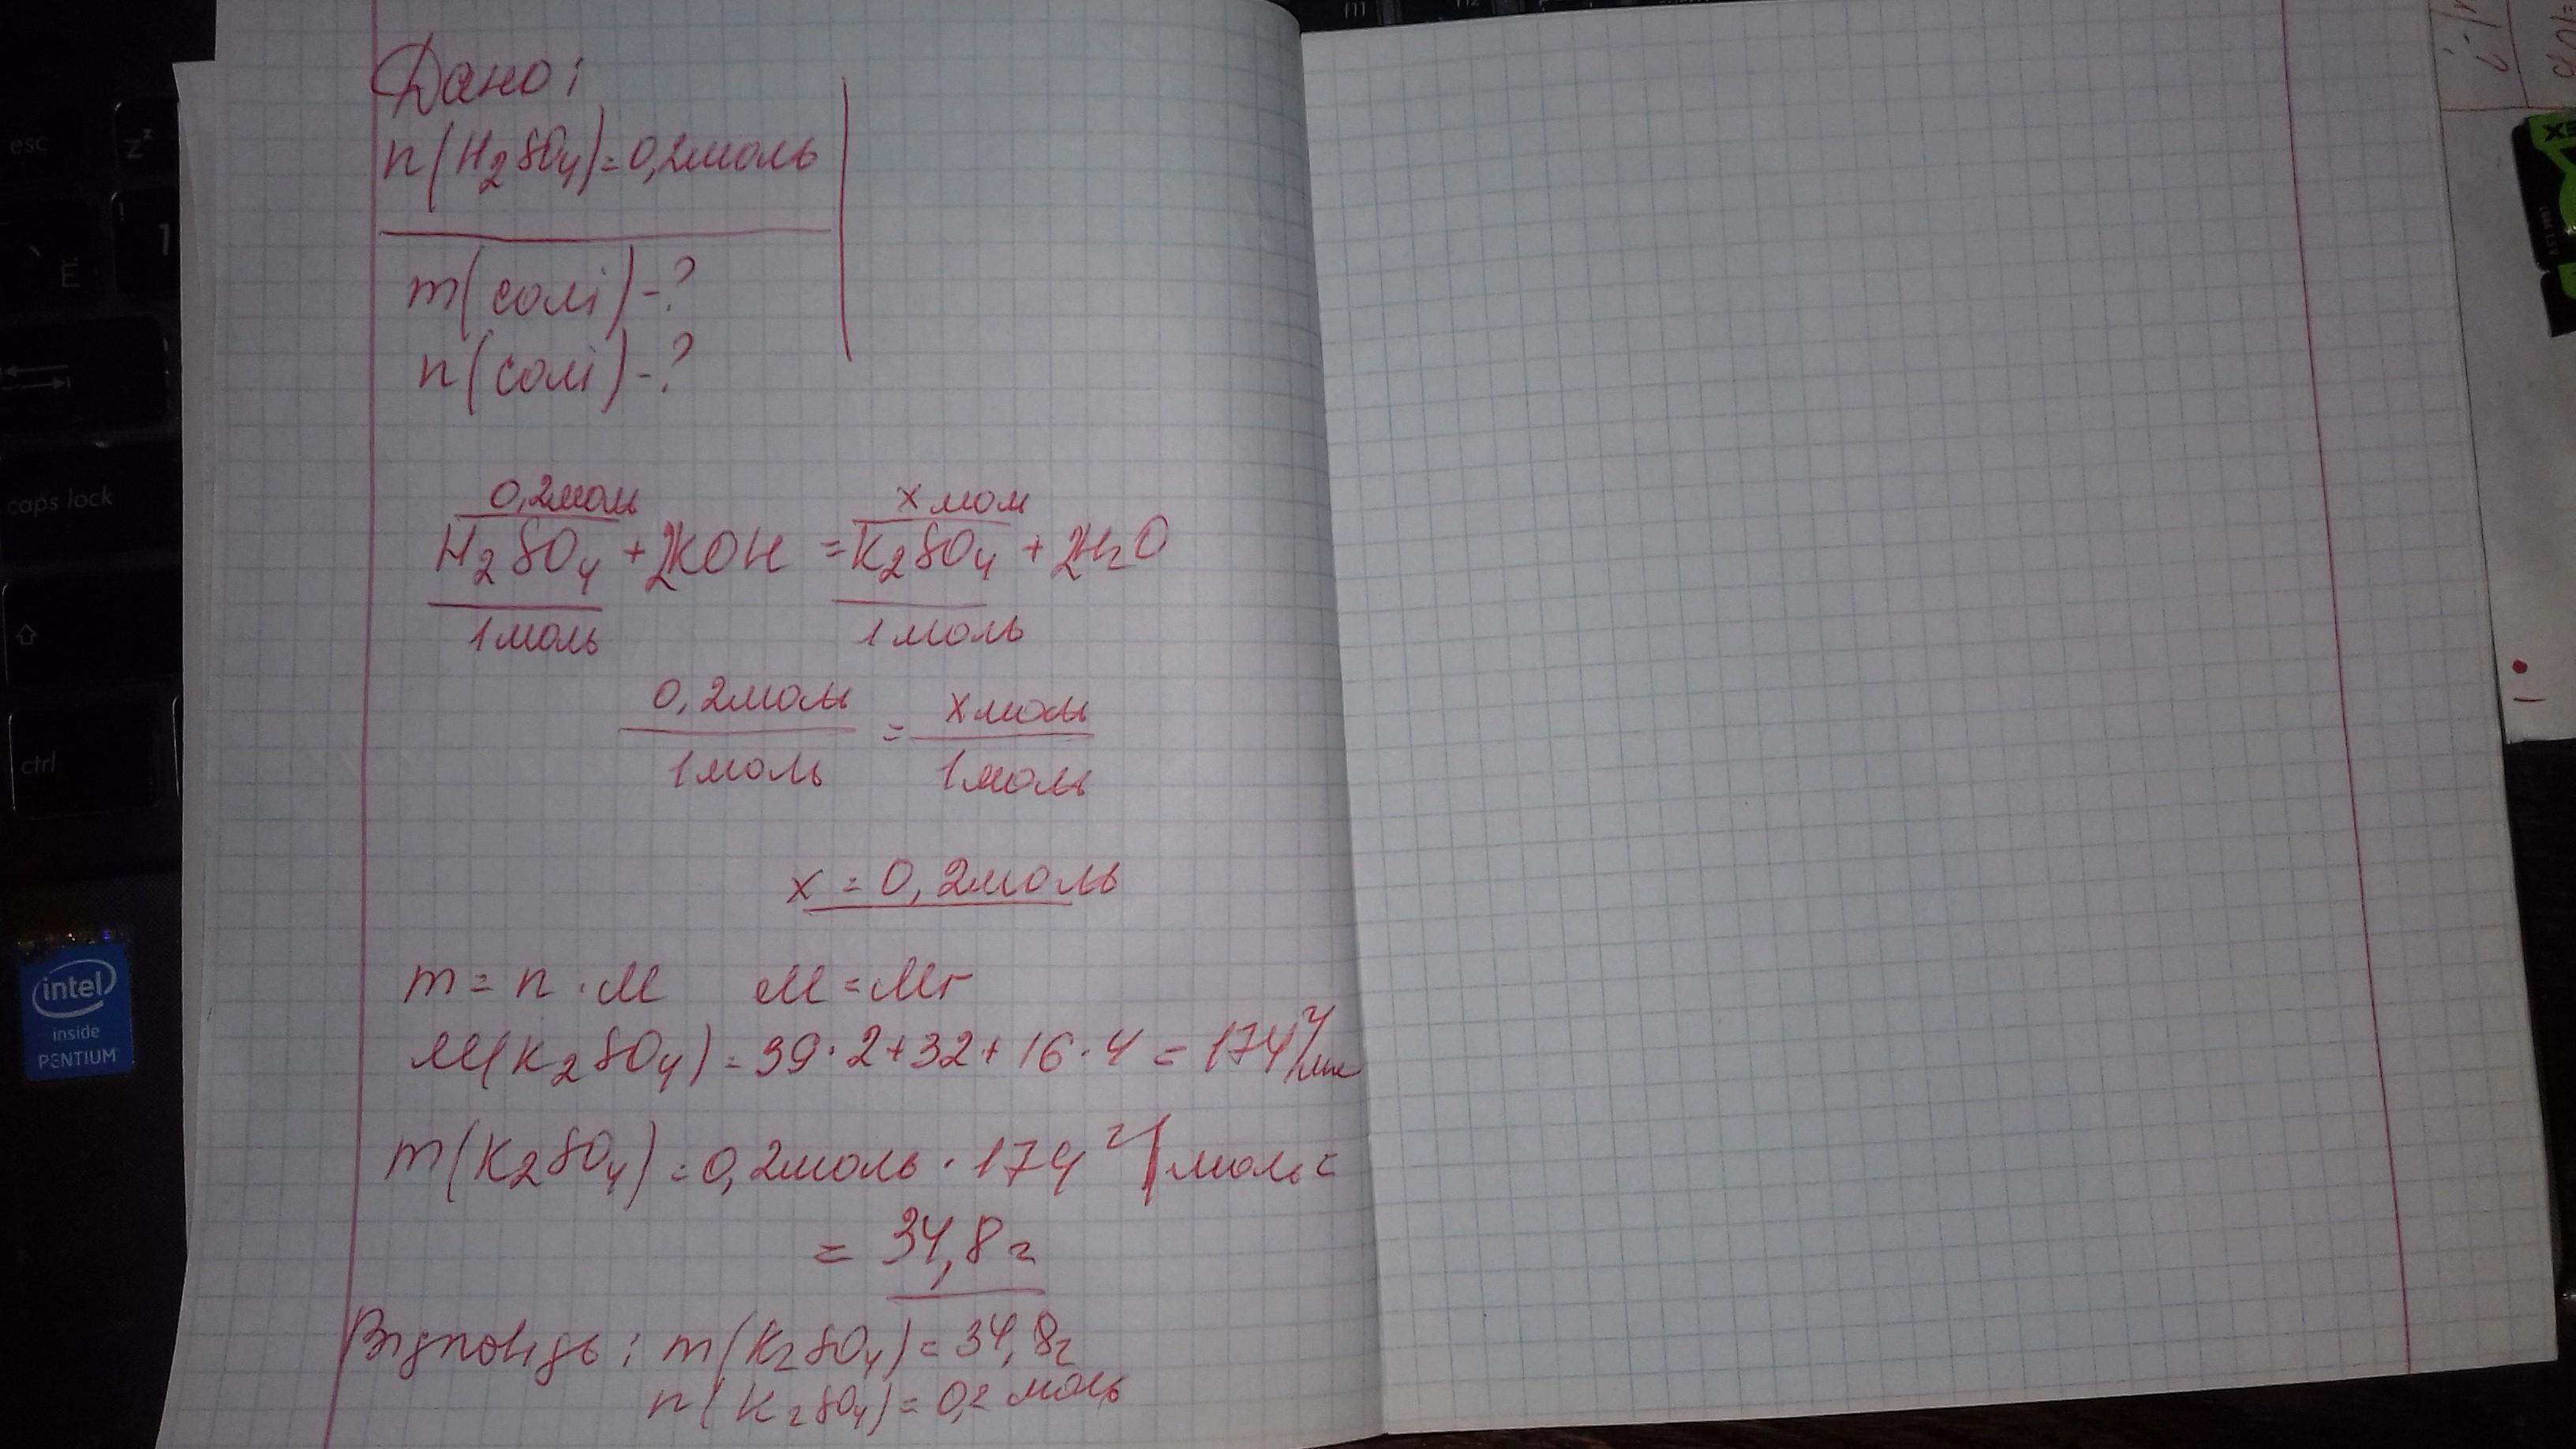 Дано:
n(H₂SO₄)=0,2моль
m(солі)-?
n(солі)-?
0,2моль х моль
H₂SO₄+2KOH=K₂SO₄+2H₂O
1моль 1моль
0,2моль = х моль
1моль 1моль
х=0,2моль
m=n·M M=Mr
M(K₂SO₄)=39·2+32+16·4=174г/моль
m(K₂SO₄)=0,2моль·174г/моль=
=34,8г
Відповідь: m(K₂SO₄)=34,8г
n(K₂SO₄)=0,2моль
esc
caps lock
ctrl
intel
inside
PENTIUM